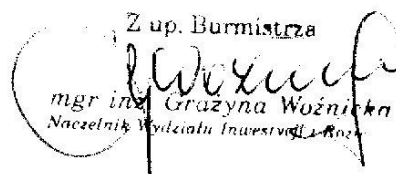 Z up. Burmistrza
mgr inż. Grażyna Woźnicka
Naczelnik Wydziału Inwestycji i